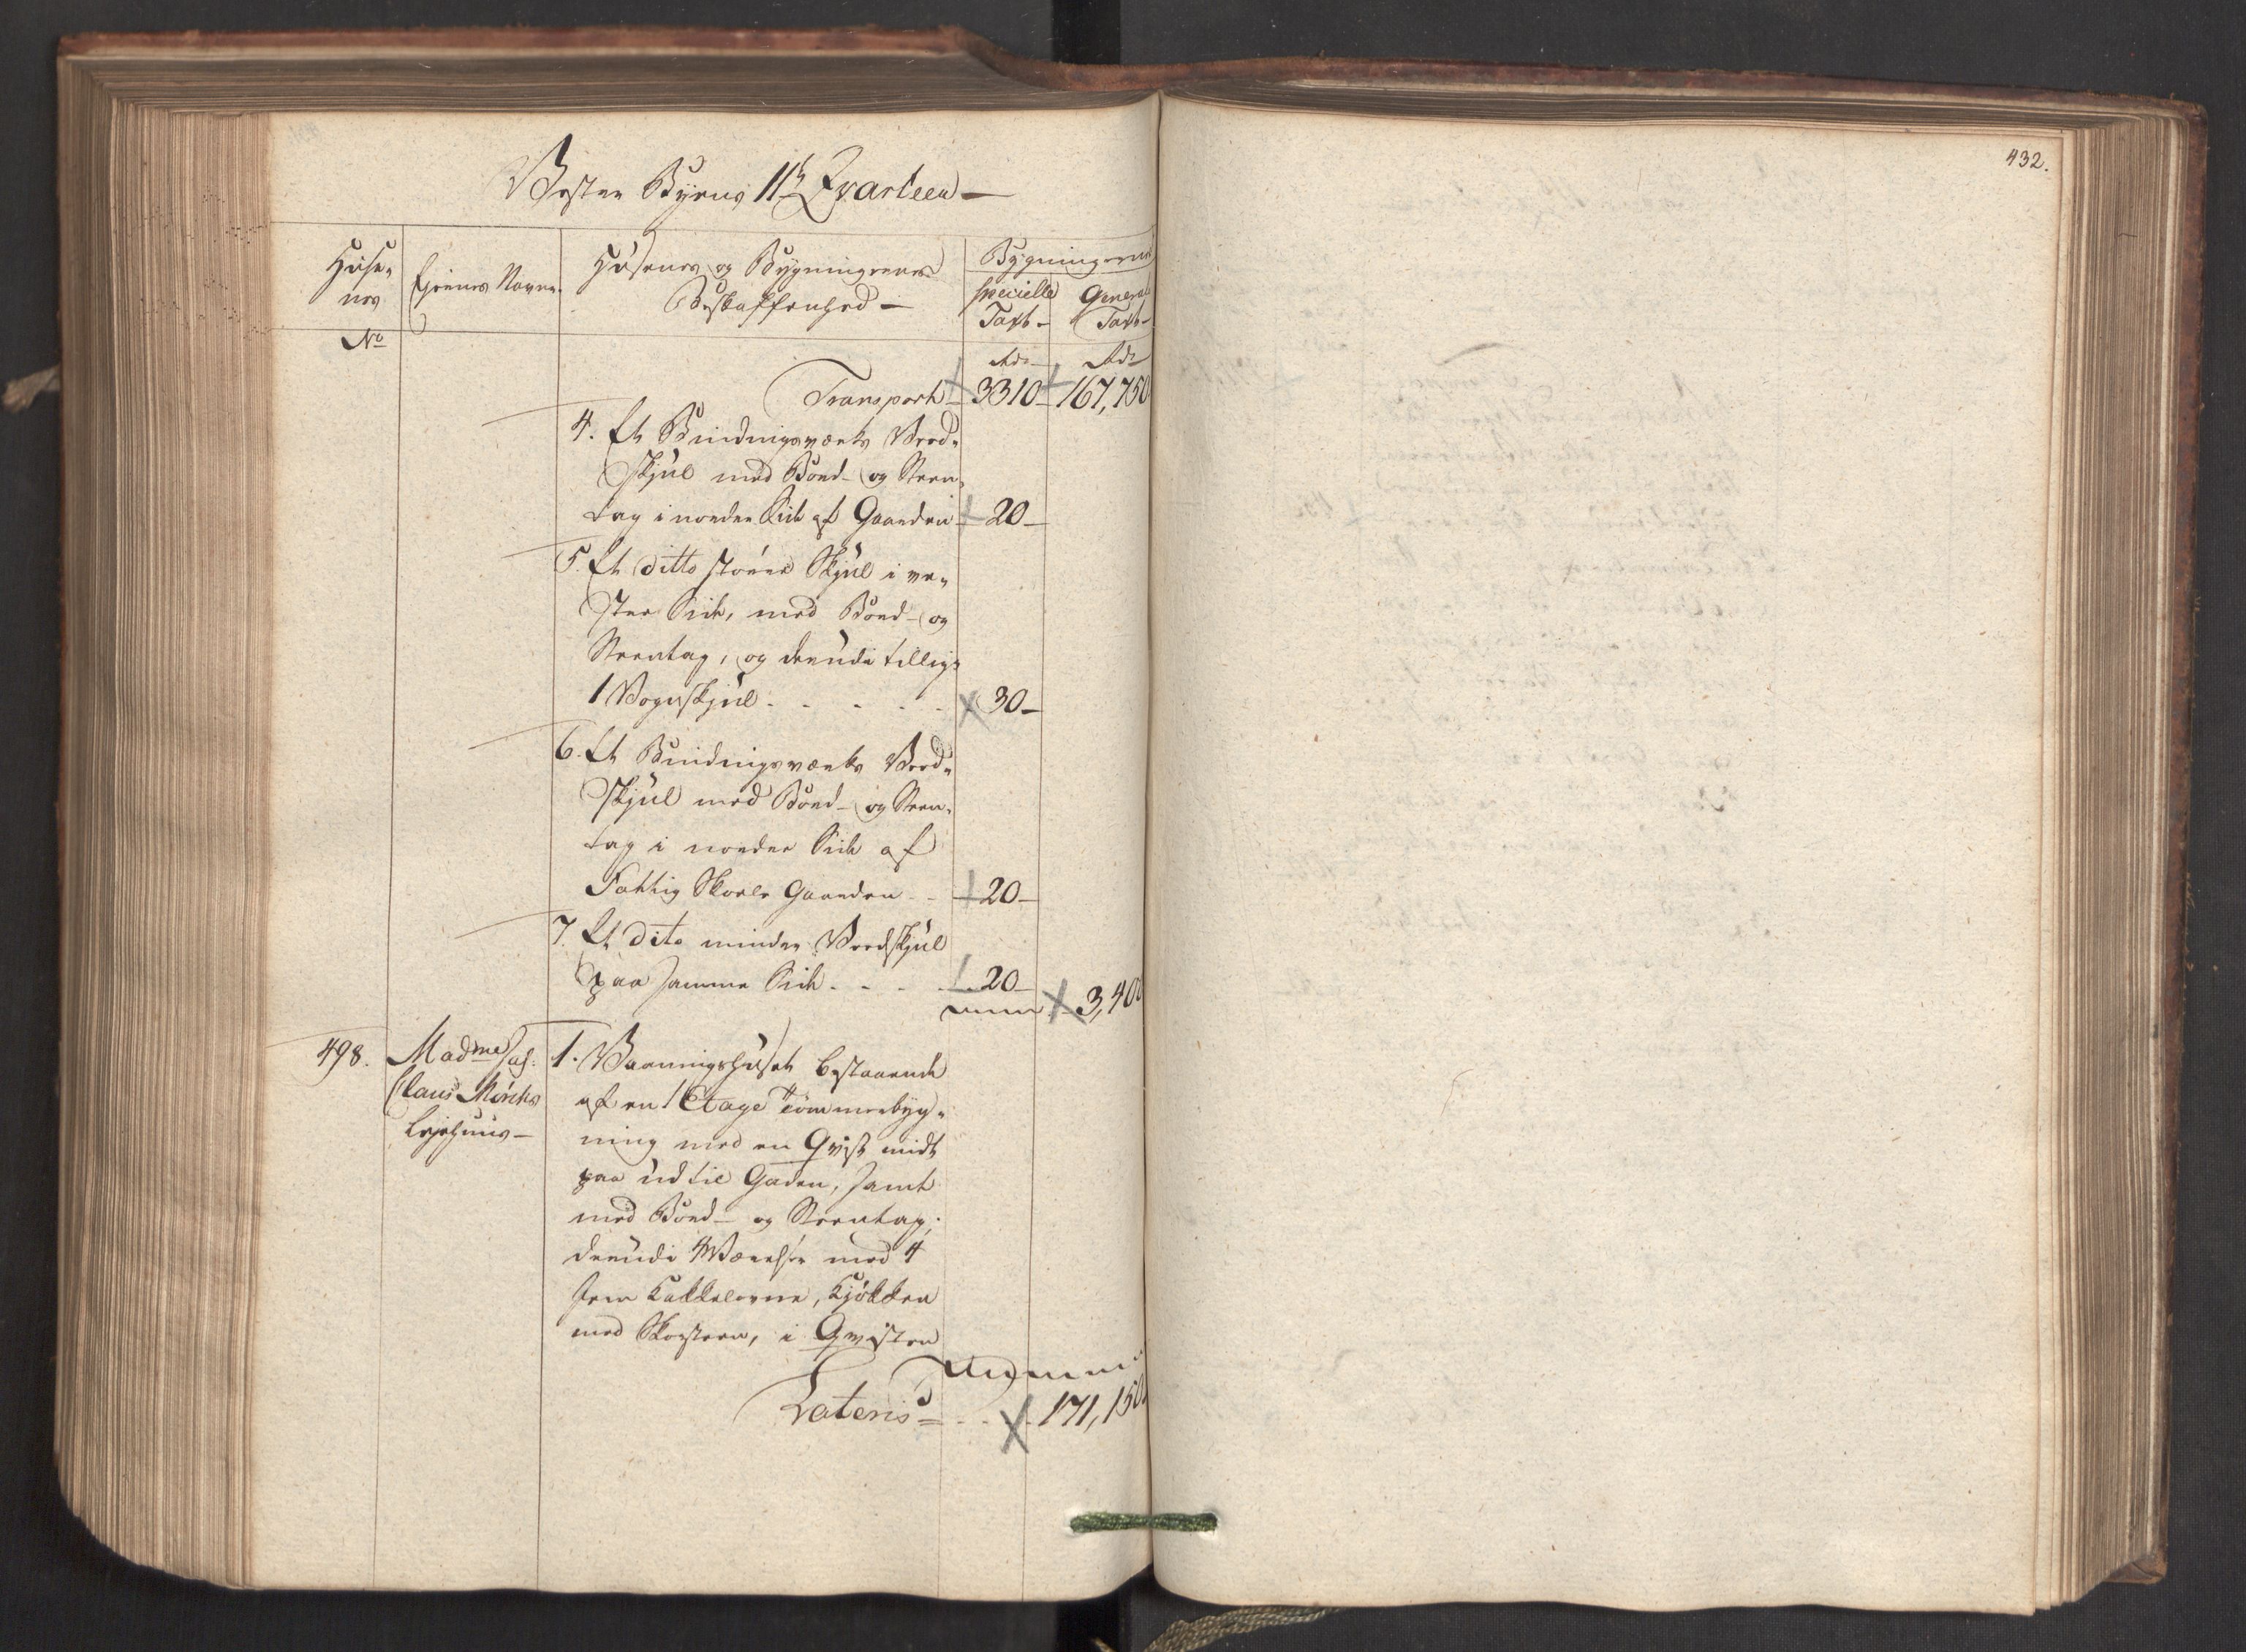 432.
Vester Byens 11te Qvarteer
Huse-
nes
No
Ejernes Navne
Husenes og Bygningernes
Beskaffenhed
Bygningernes
specielle
Taxt
Generale
Taxt
Rdr
Rdr
Transport 3310 167,750
4. Et Bindingsværks Veed-
skjul med Bord- og Steen-
tag i norder Side af Gaarden 20
5. Et ditto større Skjul i ve-
ster Side, med Bord- og
Steentag, og derudi tillige
1 Vognskjul 30
6. Et Bindingsværks Veed-
skjul med Bord- og Steen-
tag i norder Side af
Fattig Skole Gaarden 20
7. Et dito mindre Veedskjul
paa samme Side 20
3,400
498.
Madme sal:
Claus Mörchs
Lejehuus
1. Vaaningshuset bestaaende
af en 1 Etage Tömmerbyg-
ning med en Qvist midt
paa ud til Gaden, samt
med Bord- og Steentag;
derudi 4 Værelser med 4
Jern Kakkelovne, Kjökken
med Skorsteen, i Qvisten
Lateris 171,150